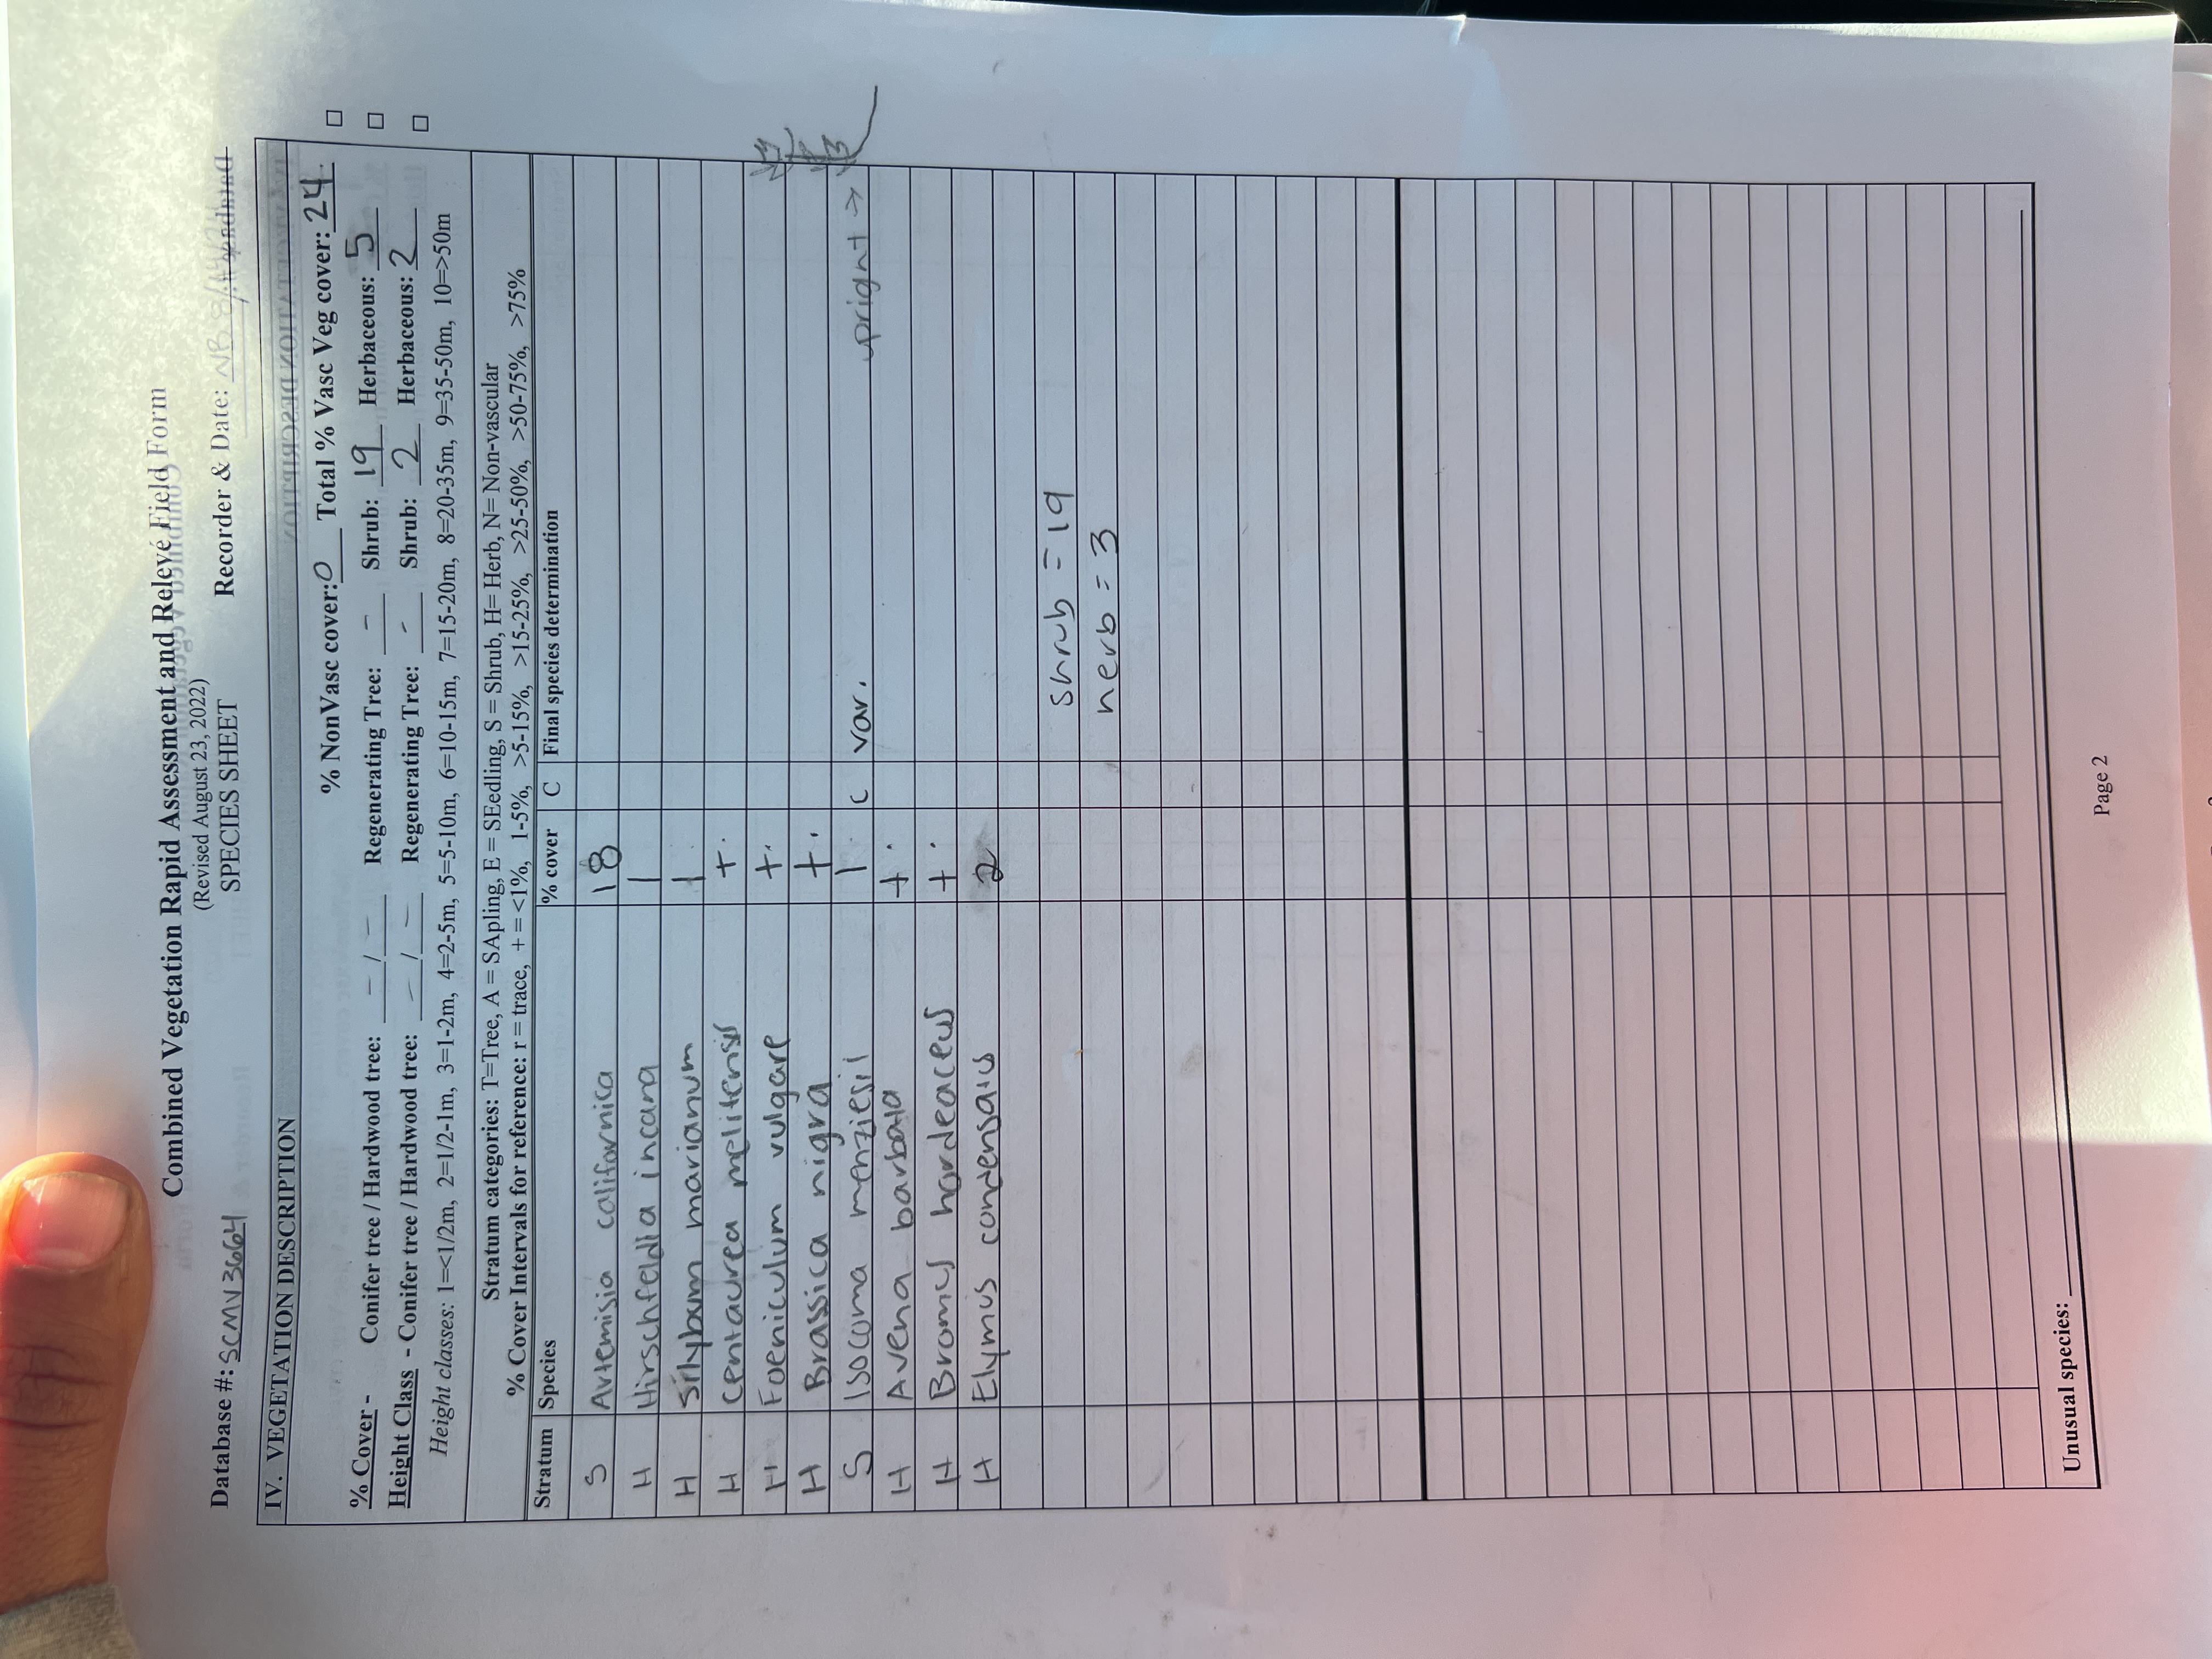 Combined Vegetation Rapid Assessment and Relevé Field Form
(Revised August 23, 2022)
SPECIES SHEET
Database #: SCMV3664 Recorder & Date:
IV. VEGETATION DESCRIPTION
% NonVasc cover: 0 Total % Vasc Veg cover: 24
% Cover - Conifer tree / Hardwood tree: - / - Regenerating Tree: - Shrub: 19 Herbaceous: 5
Height Class - Conifer tree / Hardwood tree: - / - Regenerating Tree: - Shrub: 2 Herbaceous: 2
Height classes: 1=<1/2m, 2=1/2-1m, 3=1-2m, 4=2-5m, 5=5-10m, 6=10-15m, 7=15-20m, 8=20-35m, 9=35-50m, 10=>50m
Stratum categories: T=Tree, A = SApling, E = SEedling, S = Shrub, H= Herb, N= Non-vascular
% Cover Intervals for reference: r = trace, + = <1%, 1-5%, >5-15%, >15-25%, >25-50%, >50-75%, >75%
Stratum Species % cover C Final species determination
S Artemisia californica 18
H Hirschfeldia incana 1
H Silybum marianum 1
H Centaurea melitensis +.
H Foeniculum vulgare +.
H Brassica nigra +.
S Isocoma menziesii 1 c var. upright →
H Avena barbata +.
H Bromus hordeaceus +.
H Elymus condensatus 2
shrub = 19
herb = 3
Unusual species:
Page 2